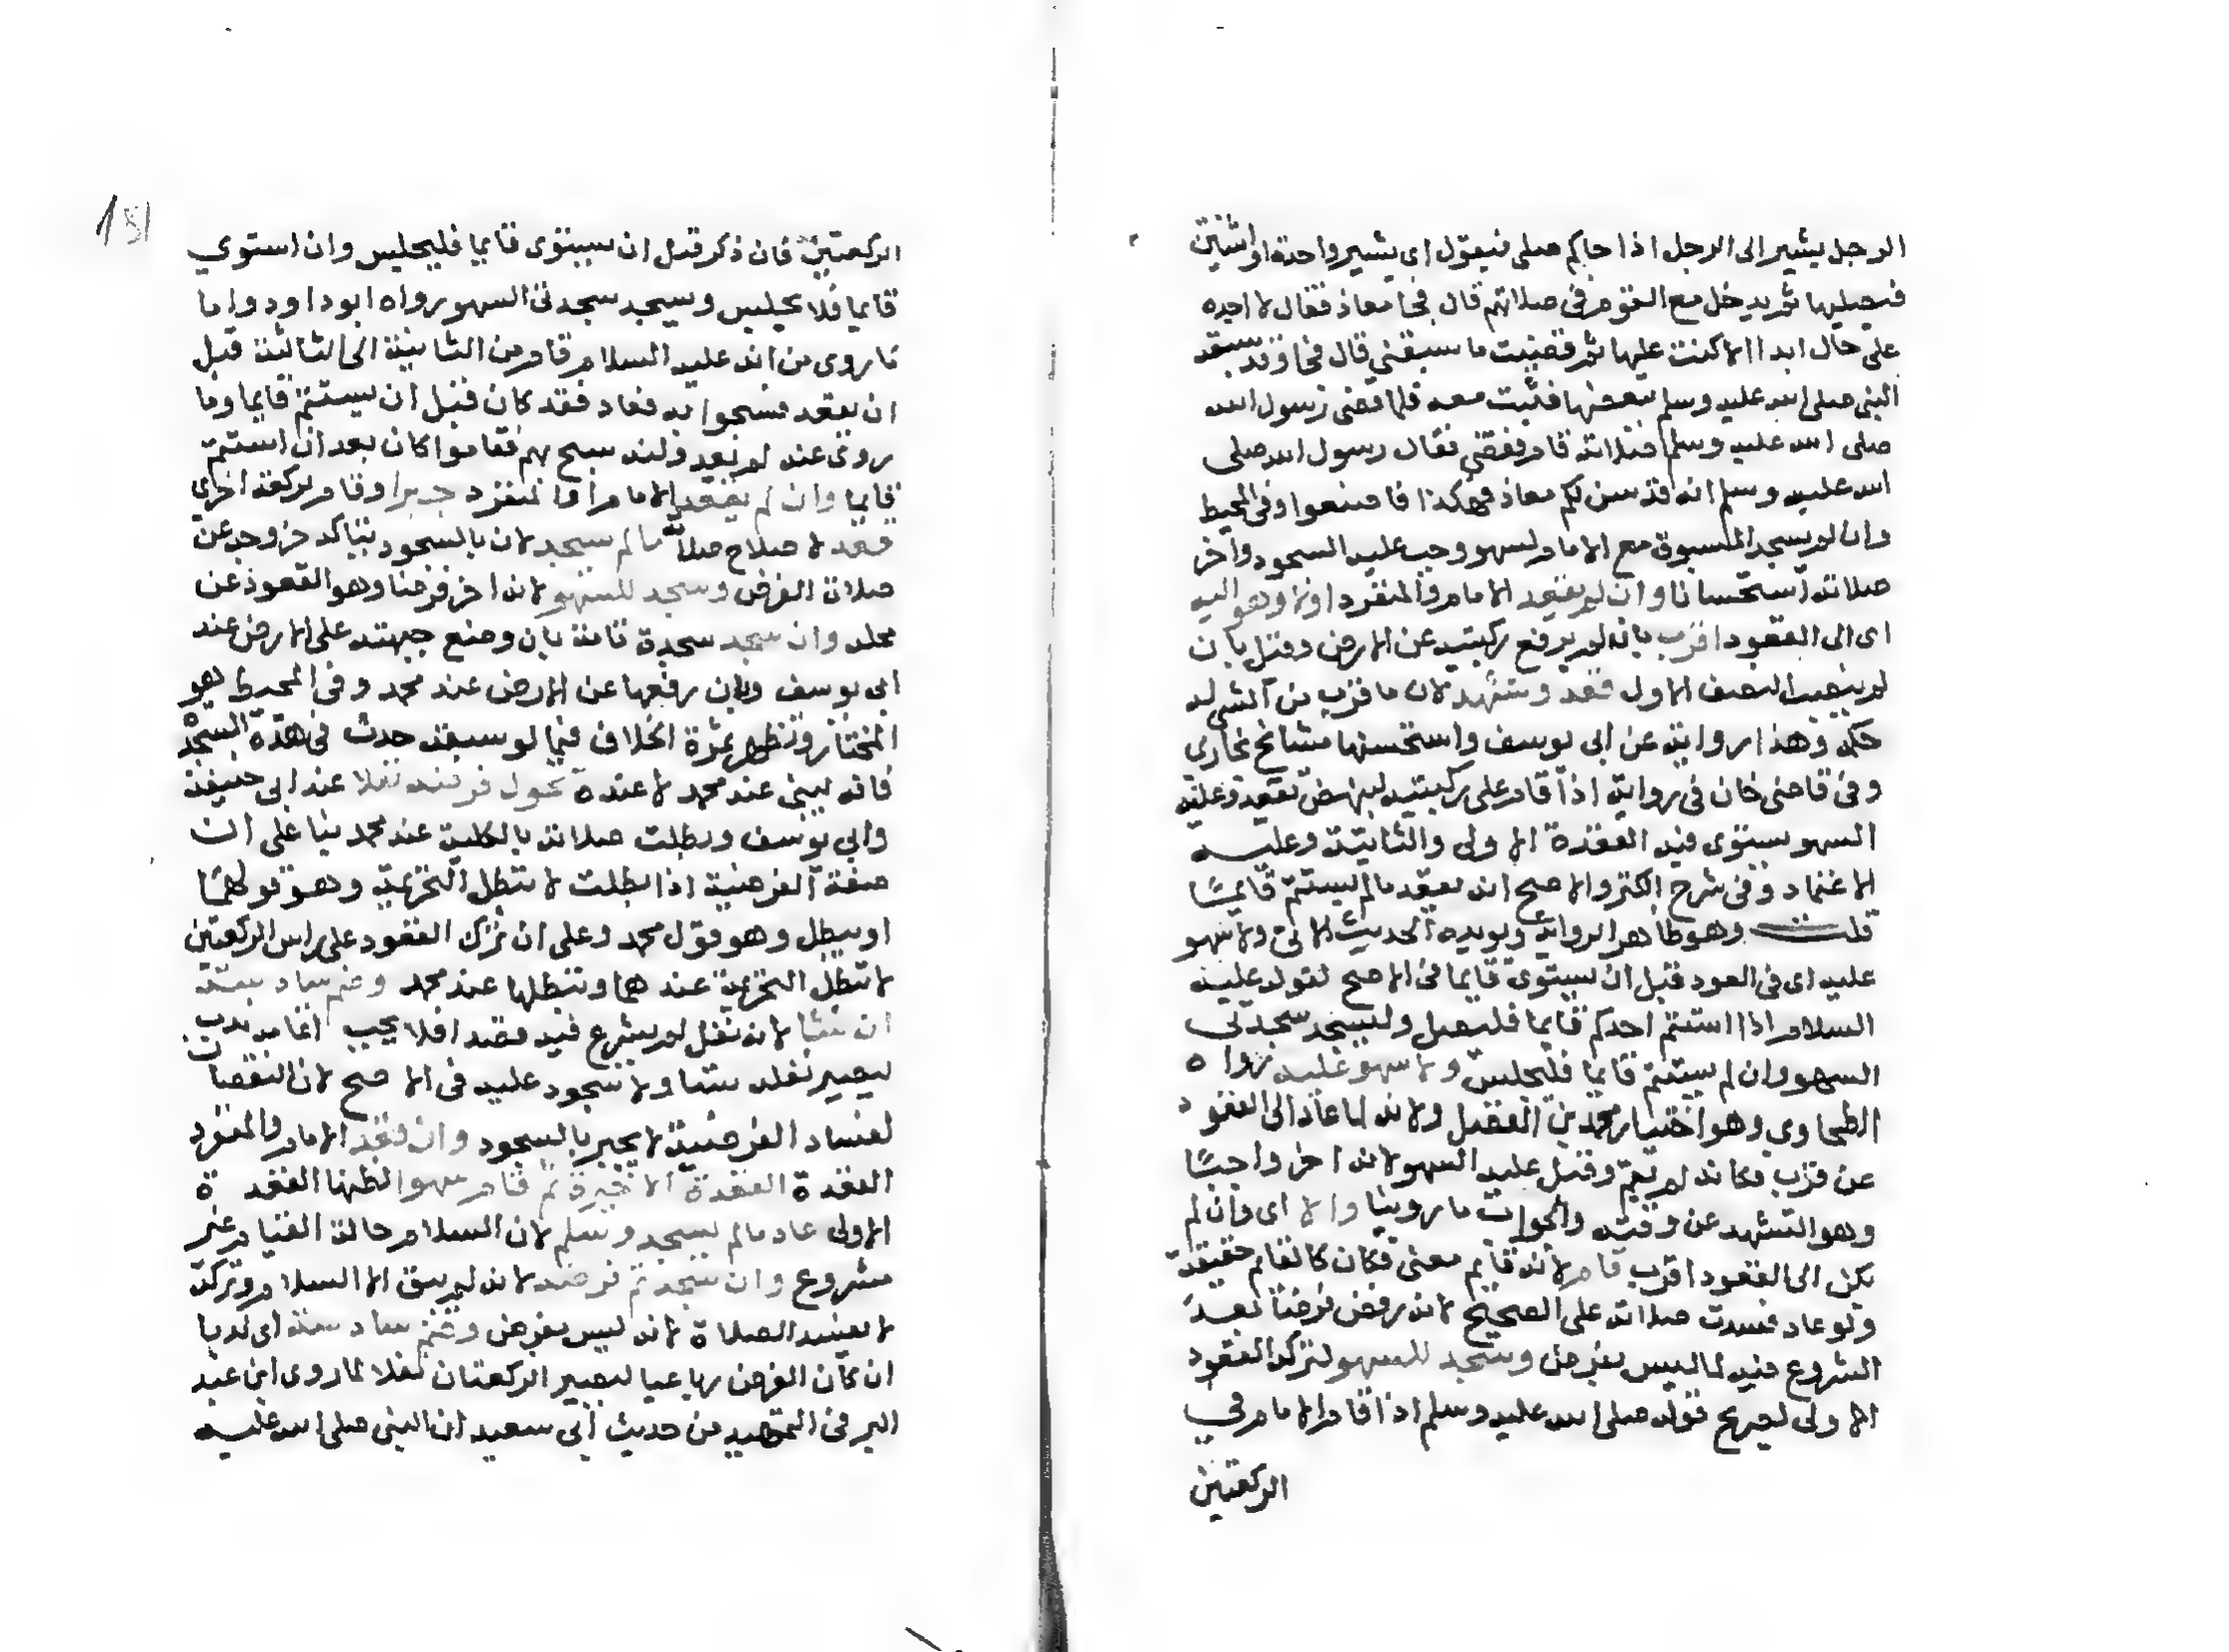 الرجل يشير الى الرجل اذا جاكم صلى فيقول اى يشير واحدة او اثنتين
فيصليها ثم يدخل مع القوم فى صلاتهم قال فجا معاذ فقال لا اجده
على حال ابدا الا كنت عليها ثم قضيت ما سبقنى قال فجا وقد سبقه
النبى صلى الله عليه وسلم ببعضها فثبت معه فلما قضى رسول الله
صلى الله عليه وسلم صلاته قام فقضى فقال رسول الله صلى
الله عليه وسلم انه قد سن لكم معاذ فهكذا فاصنعوا وفى المحيط
وان لم يسجد المسبوق مع الامام لسهو وجب عليه السجود واخر
صلاته استحسانا وان لم يقعد الامام والمنفرد اولا وهو اليه
اى الى القعود اقرب بانه لم يرفع ركبتيه عن الارض وقيل بان
لم ينتصب النصف الاول قعد وتشهد لان ما قرب من الشى له
حكمه وهذا رواية عن ابى يوسف واستحسنها مشايخ بخارى
وفى قاضى خان فى رواية اذا قام على ركبتيه لينهض يقعد وعليه
السهو يستوى فيه القعدة الاولى والثانية وعليه
الاعتماد وفى شرح الكنز والاصح انه يعود ما لم يستتم قايما
قلت وهو ظاهر الرواية ويويده الحديث الاتى ولا سهو
عليه اى فى العود قبل ان يستوى قايما فى الاصح لقوله عليه
السلام اذا استتم احدكم قايما فليصل وليسجد سجدتى
السهو وان لم يستتم قايما فليجلس ولا سهو عليه رواه
الطحاوى وهو اختيار محمد بن الفضل ولانه لما عاد الى القعود
عن قرب فكانه لم يقم وقيل عليه السهو لانه اخر واجبا
وهو التشهد عن وقته والجواب ما روينا والا اى وان لم
يكن الى القعود اقرب قام لانه قايم معنى فكان كالقايم حقيقة
ولو عاد فسدت صلاته على الصحيح لانه رفض فرضا بعد
الشروع فيه لما ليس بفرض وسجد للسهو لتركه القعود
الاولى لصريح قوله صلى الله عليه وسلم اذا قام الامام فى
الركعتين
الركعتين فان ذكر قبل ان يستوى قايما فليجلس وان استوى
قايما فلا يجلس وسيجد سجدتى السهو رواه ابو داود واما
ما روى من انه عليه السلام قام من الثانية الى الثالثة قبل
ان يقعد فسبحوا به فعاد فقد كان قبل ان يستتم قايما وما
روى عنه لم يعد ولنه سبح بهم فقاموا كان بعد ان استتم
قايما وان لم يقعد الامام او المنفرد اخيرا وقام لركعة اخرى
قعد لاصلاح صلاته ما لم يسجد لان بالسجود يتاكد خروجه عن
صلاة الفرض وسجد للسهو لانه اخر فرضا وهو القعود عن
محله وان سجد سجدة تامة بان وضع جبهته على الارض عند
ابى يوسف وبان رفعها عن الارض عند محمد وفى المحيط هو
المختار وتظهر ثمرة الخلاف فيما لو سبقه حدث فى هذه السجدة
فانه يبنى عند محمد لا عنده تحول فرضه نفلا عند ابى حنيفة
وابى يوسف وبطلت صلاته بالكلية عند محمد بنا على ان
صفة الفرضية اذا بطلت لا تبطل التحريمة وهو قولهما
او يبطل وهو قول محمد وعلى ان ترك القعود على راس الركعتين
لا تبطل التحريمة عندهما وتبطلها عند محمد وضم سادسة
ان شا لانه نفل لم يشرع فيه قصدا فلا يجب انما يندب
ليصير نفله ستا ولا سجود عليه فى الاصح لان النقصان
لفساد الفرضية لا يجبر بالسجود وان قعد الامام والمنفرد
القعدة القعدة الاخيرة ثم قام سهوا لظنها القعدة
الاولى عاد ما لم يسجد وسلم لان السلام حالة القيام غير
مشروع وان سجد تم فرضه لانه لم يبق الا السلام وتركه
لا يفسد الصلاة لانه ليس بفرض وضم سادسة اى ندبا
ان كان الفرض رباعيا ليصير الركعتان نفلا لما روى ابن عبد
البر فى التمهيد من حديث ابى سعيد ان النبى صلى الله عليه